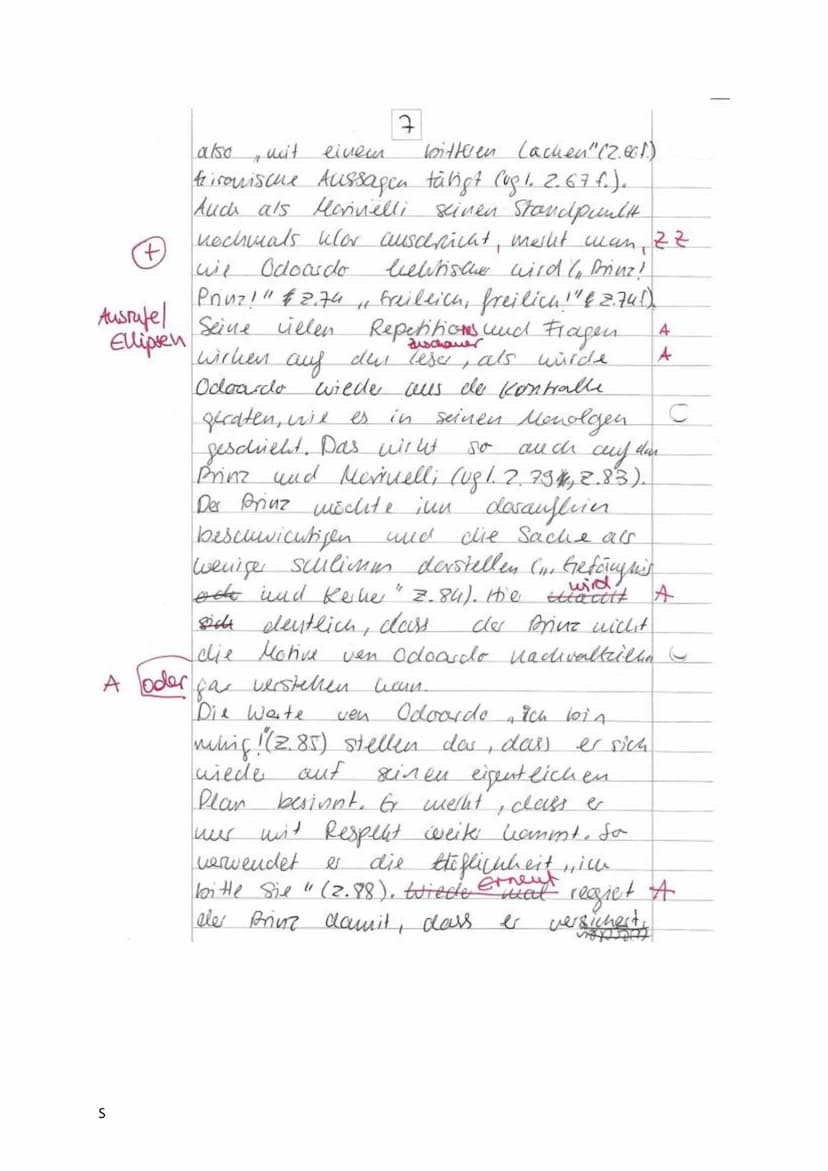 7
also „mit einem bitteren Lachen" (Z.66f.)
ironische Aussagen tätigt (vgl. Z.67f.).
Auch als Marinelli seinen Standpunkt
nochmals klar ausdrückt, merkt man, ZZ
+ wie Odoardo hektischer wird („Prinz!
Prinz!" Z.74 „Freileich, freilich!" Z.74f.).
Ausrufe/
Ellipsen
Seine vielen Repetitions und Fragen A
Zuschauer
wirken auf den Leser, als würde A
Odoardo wieder aus der Kontrolle
geraten, wie es in seinen Monolgen
geschieht. Das wirkt so auch auf den
Prinz und Marinelli (vgl. Z.79, Z.83).
Der Prinz möchte ihn daraufhin
beschwichtigen und die Sache als
weniger schlimm darstellen („Gefängnis
wird
oder und Kerker" Z.84). Hier macht A
sich deutlich, dass der Prinz nicht
die Motive von Odoardo nachvollziehen
A oder gar verstehen kann.
Die Worte von Odoardo „Ich bin
ruhig!" (Z.85) stellen dar, dass er sich
wieder auf seinen eigentlichen
Plan besinnt. Er merkt, dass er
nur mit Respekt weiter kommt. So
verwendet er die Höflichkeit „ich
Erneut
bitte Sie" (Z.88). Wieder mal regiet A
der Prinz damit, dass er versichert,
S